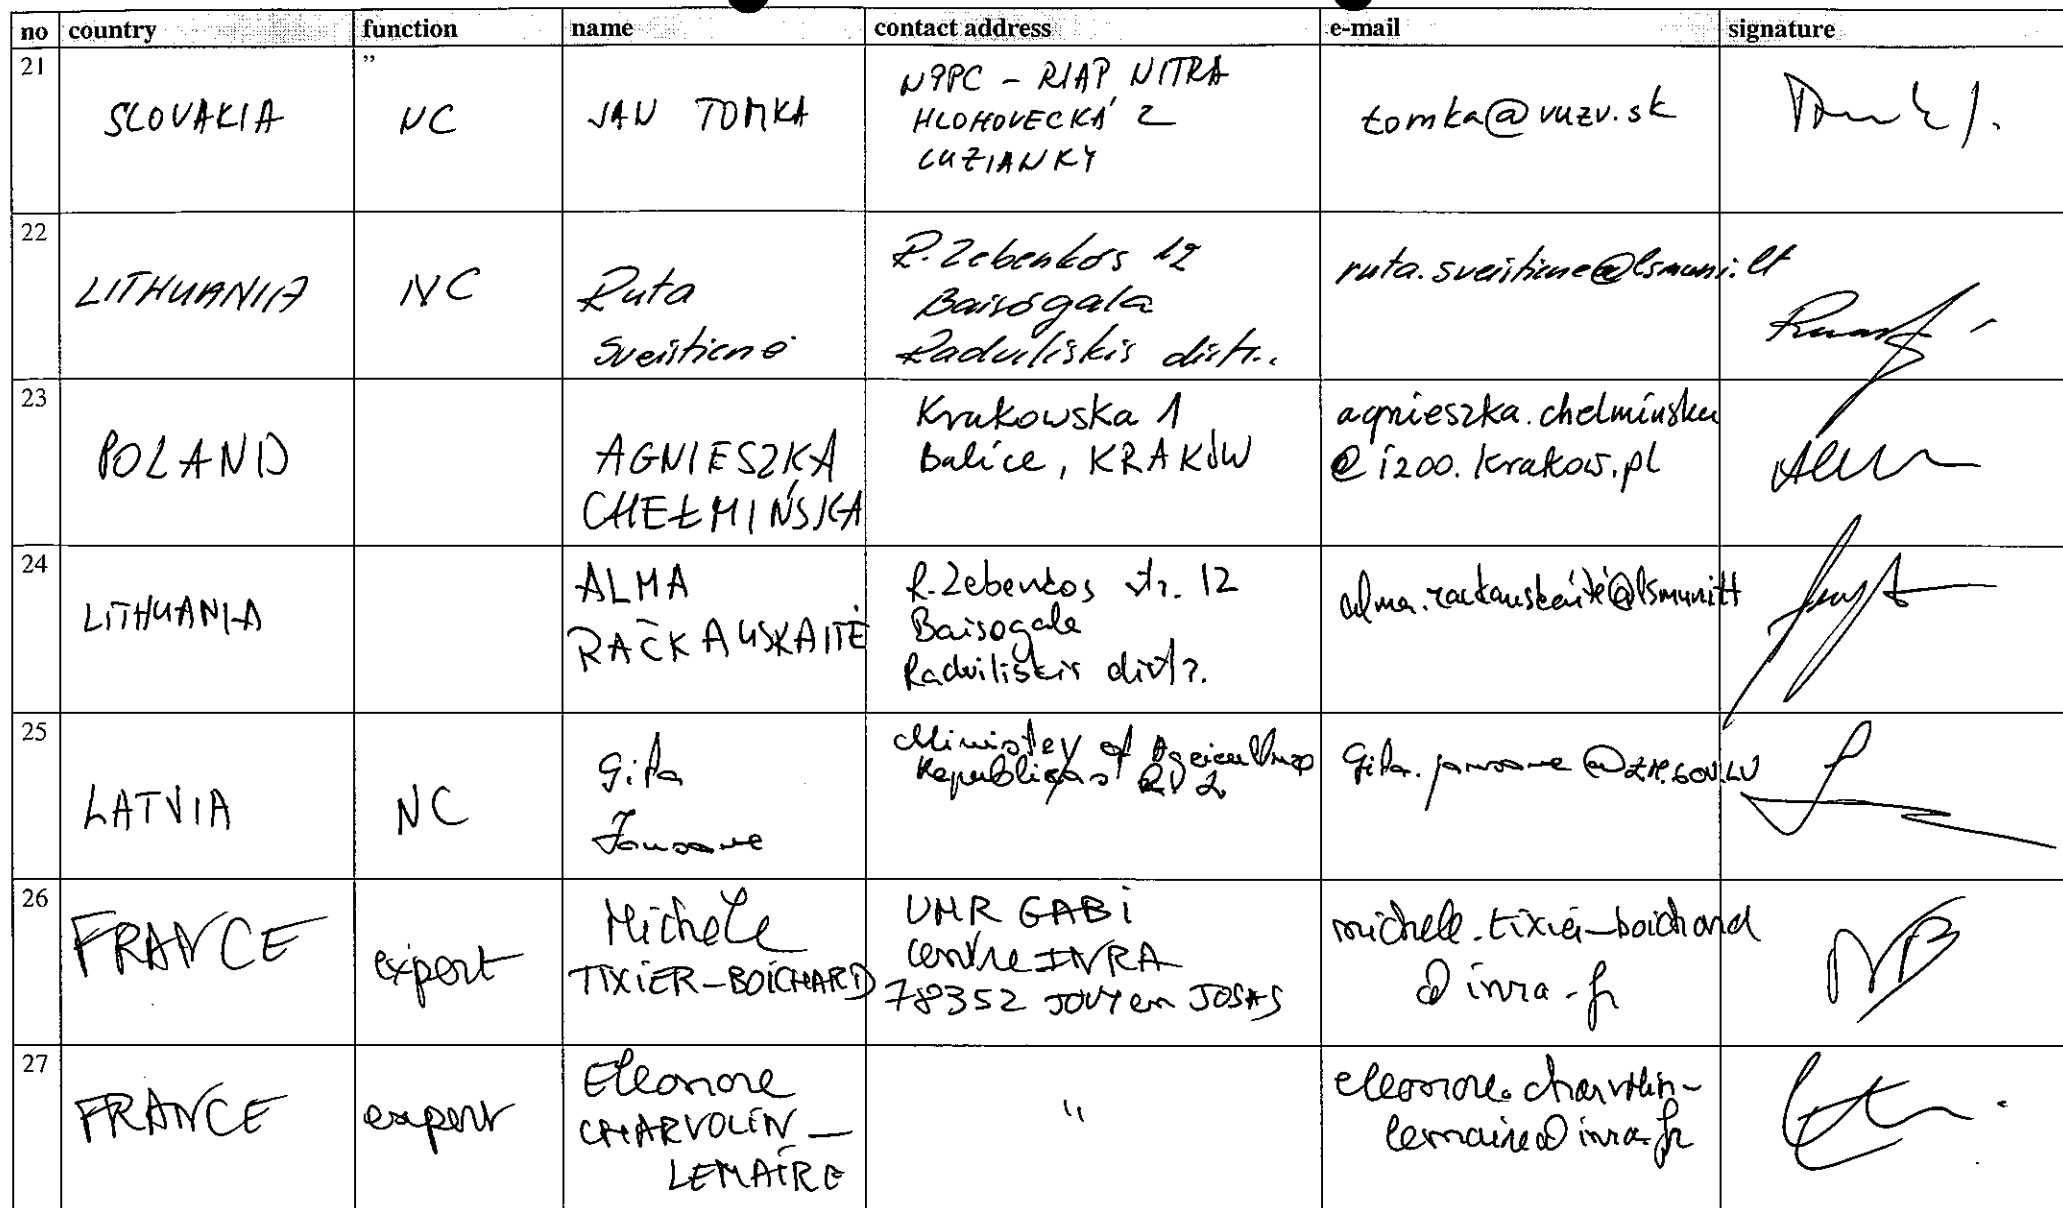 no country function name contact address e-mail signature
21 "
SLOVAKIA NC JAN TOMKA
NPPC - RIAP NITRA
HLOHOVECKÁ 2
LUŽIANKY
tomka@vuzv.sk
22
LITHUANIA NC
Ruta
Sveistienė
R. Zebenkos 12
Baisogala
Radviliskis distr.
ruta.sveistiene@lsmuni.lt
23
POLAND
AGNIESZKA
CHEŁMIŃSKA
Krakowska 1
Balice, KRAKÓW
agnieszka.chelminska
@izoo.krakow.pl
24
LITHUANIA
ALMA
RAČKAUSKAITĖ
R. Zebenkos str. 12
Baisogala
Radviliskis distr.
alma.rackauskaitė@lsmuni.lt
25
LATVIA NC
Gita
Jansone
Ministry of Agriculture
Republikas 2
Gita.jansone@ZM.GOV.LV
26
FRANCE expert
Michèle
TIXIER-BOICHARD
UMR GABI
Centre INRA
78352 JOUY en JOSAS
michele.tixier-boichard
@inra.fr
27
FRANCE expert
Eleonore
CHARVOLIN-
LEMAIRE
"
eleonore.charvolin-
lemaire@inra.fr